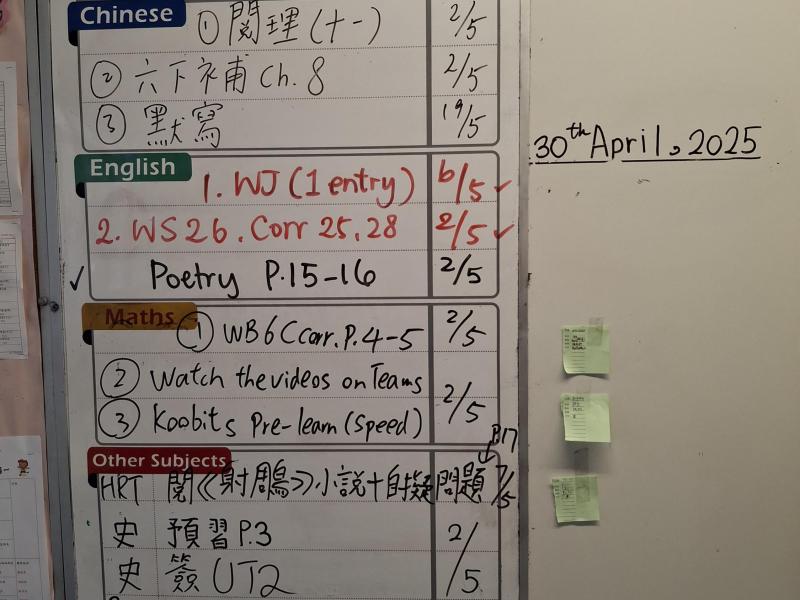 Chinese
① 閱理(十一) 2/5
② 六下補 Ch.8 2/5
③ 默寫 19/5
30th April, 2025
English
1. WJ (1 entry) 6/5 ✓
2. WS 26. Corr 25, 28 2/5 ✓
✓ Poetry P.15-16 2/5
Maths
① WB 6C corr. P.4-5 2/5
② Watch the videos on Teams
③ Koobits Pre-learn (Speed) 2/5
P.17
Other Subjects
HRT 閱《射鵰》小說+自擬問題 7/5
史 預習 P.3 2/
史 簽 UT2 /5